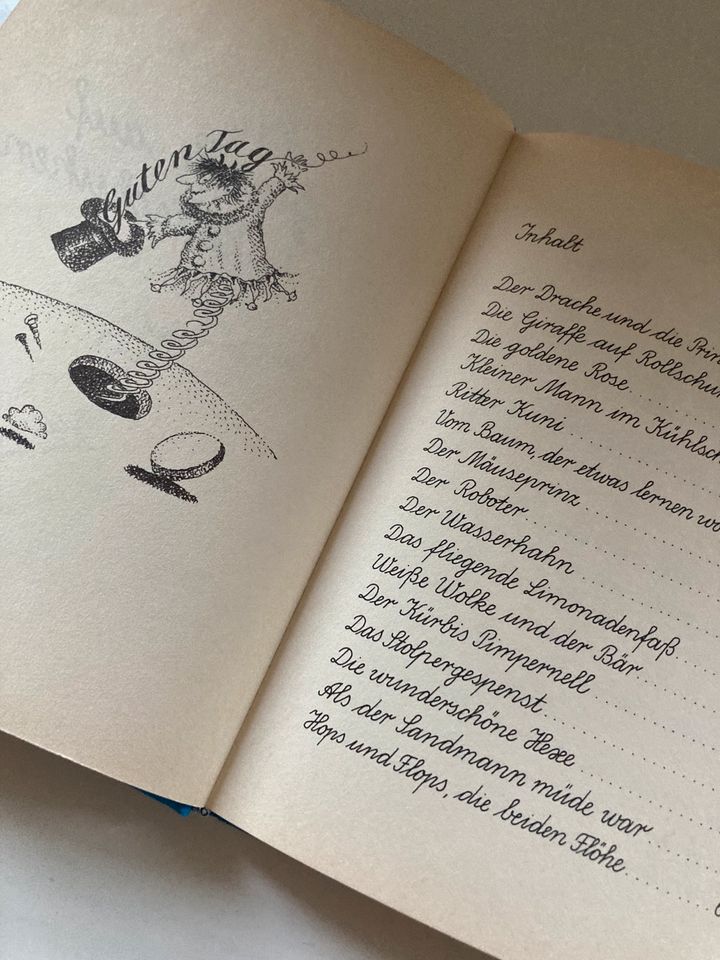 Guten Tag
Inhalt
Der Drache und die Prin
Die Giraffe auf Rollschuh
Die goldene Rose
Kleiner Mann im Kühlsch
Ritter Kuni
Vom Baum, der etwas lernen wo
Der Mäuseprinz
Der Roboter
Der Wasserhahn
Das fliegende Limonadenfaß
Weiße Wolke und der Bär
Der Kürbis Pimpernell
Das Stolpergespenst
Die wunderschöne Hexe
Als der Sandmann müde war
Hops und Flops, die beiden Flöhe